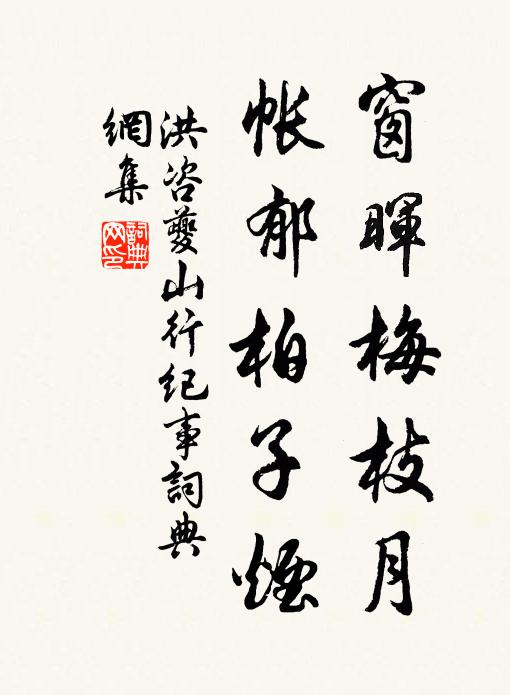 窗暉梅枝月
帳郁柏子煙
洪咨夔山行紀事詞典
網集
詞典
网印